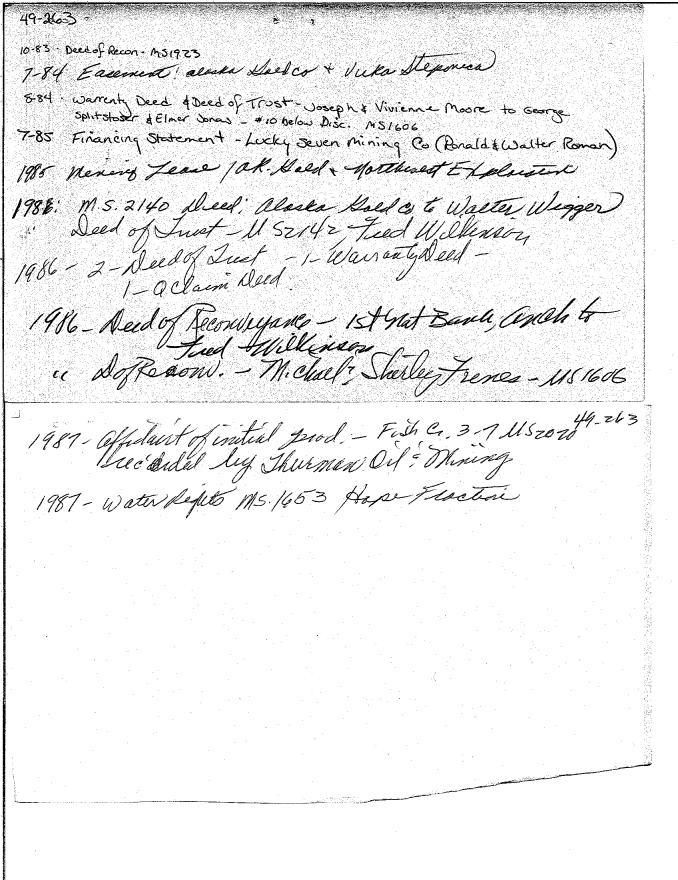 49-263
10-83 - Deed of Recon - MS1923
7-84 Easement: Alaska Gold co & Vuka Stepovich
8-84 - Warrenty Deed & Deed of Trust - Joseph & Vivienne Moore to George
Splitstoser & Elmer Jonas - #10 Below Disc. MS1606
7-85 Financing Statement - Lucky Seven Mining Co (Ronald & Walter Roman)
1985 Mining Lease / AK. Gold & Northwest Exploration
1986: M.S. 2140 Deed; Alaska Gold co to Walter Wigger
" Deed of Trust - MS2142, Fred Wilkinson
1986 - 2 - Deed of Trust - 1 - Warranty Deed -
1 - QClaim Deed.
1986 - Deed of Reconveyance - 1st Nat Bank, Anch to
Fred Wilkinson
" D of Reconv. - Michael & Shirley - MS1606
49-263
1987 - Affidavit of initial prod. - Fish Cr. 3-7 MS2020
recorded by Thurman Oil & Mining
1987 - Water Rights MS.1653 Hope Fraction